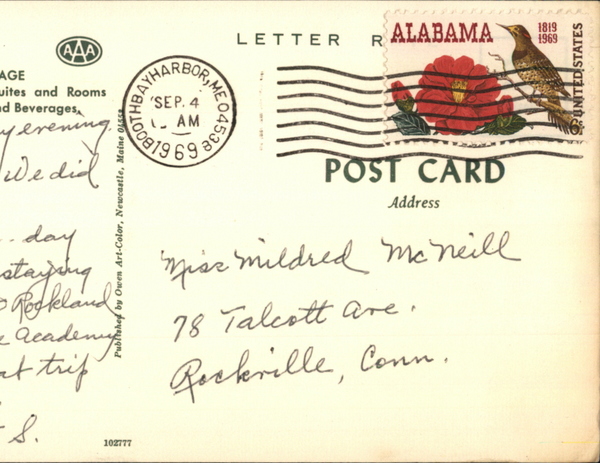 AAA
LETTER R
ALABAMA
1819
1969
UNITED STATES
6c
AGE
uites and Rooms
nd Beverages.
BOOTHBAY HARBOR, ME. 04538
SEP. 4
AM
1969
POST CARD
Address
y evening.
We did
day
staying
Rockland
Academy
at trip
S.
Published by Owen Art-Color, Newcastle, Maine
Miss Mildred McNeill
78 Talcott Ave.
Rockville, Conn.
102777